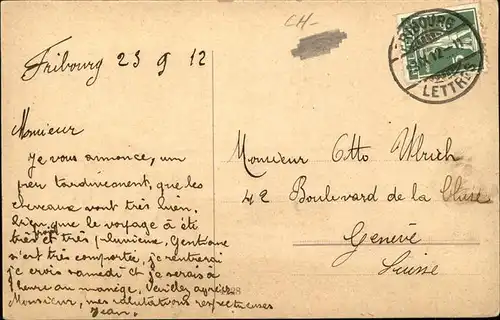 CH-
FRIBOURG
LETTRES
Fribourg 23 9 12
Monsieur
Je vous annonce, un
peu tardivement, que les
chevaux vont très bien,
bien que le voyage a été
très froid et très pluvieux. Gentiane
s'est très comportée, je rentrerai
je crois samedi et je serais à
1 heure au manège. Veuillez agréer
Monsieur, mes salutations respectueuses
Jean.
Monsieur Otto Ulrich
42 Boulevard de la Cluse
Genève
Suisse